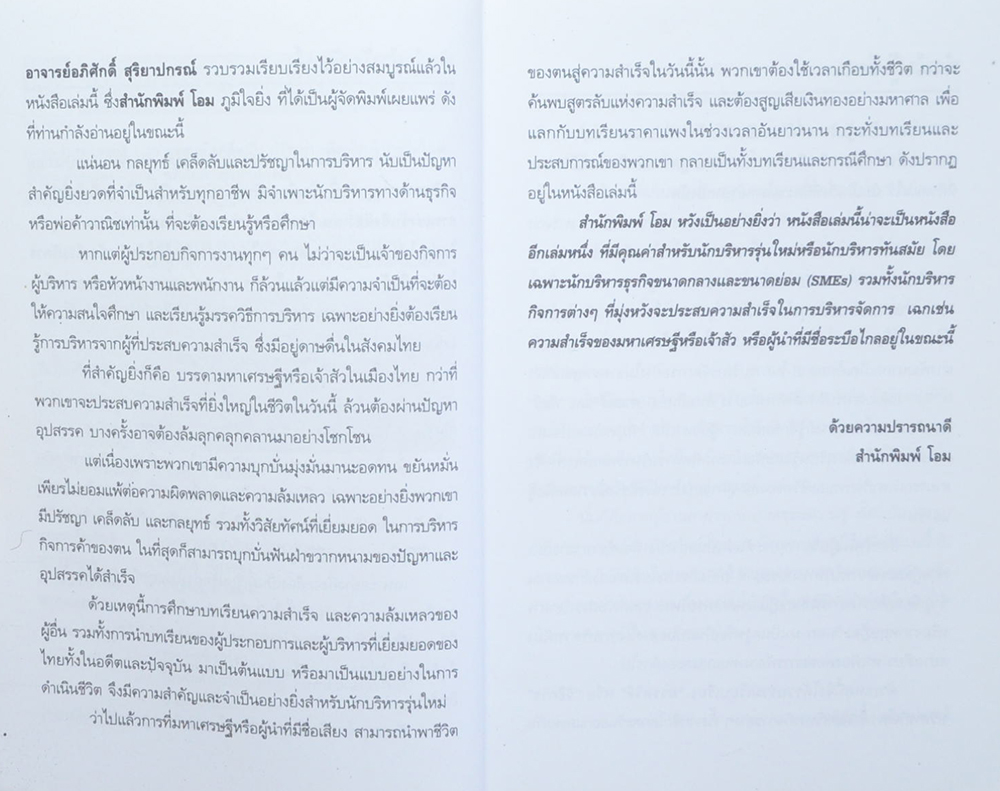 อาจารย์อภิศักดิ์ สุริยาปกรณ์ รวบรวมเรียบเรียงไว้อย่างสมบูรณ์แล้วใน
หนังสือเล่มนี้ ซึ่งสำนักพิมพ์ โอม ภูมิใจยิ่ง ที่ได้เป็นผู้จัดพิมพ์เผยแพร่ ดัง
ที่ท่านกำลังอ่านอยู่ในขณะนี้
แน่นอน กลยุทธ์ เคล็ดลับและปรัชญาในการบริหาร นับเป็นปัญหา
สำคัญยิ่งยวดที่จำเป็นสำหรับทุกอาชีพ มิจำเพาะนักบริหารทางด้านธุรกิจ
หรือพ่อค้าวาณิชเท่านั้น ที่จะต้องเรียนรู้หรือศึกษา
หากแต่ผู้ประกอบกิจการงานทุกๆ คน ไม่ว่าจะเป็นเจ้าของกิจการ
ผู้บริหาร หรือหัวหน้างานและพนักงาน ก็ล้วนแล้วแต่มีความจำเป็นที่จะต้อง
ให้ความสนใจศึกษา และเรียนรู้มรรควิธีการบริหาร เฉพาะอย่างยิ่งต้องเรียน
รู้การบริหารจากผู้ที่ประสบความสำเร็จ ซึ่งมีอยู่ดาษดื่นในสังคมไทย
ที่สำคัญยิ่งก็คือ บรรดามหาเศรษฐีหรือเจ้าสัวในเมืองไทย กว่าที่
พวกเขาจะประสบความสำเร็จที่ยิ่งใหญ่ในชีวิตในวันนี้ ล้วนต้องผ่านปัญหา
อุปสรรค บางครั้งอาจต้องล้มลุกคลุกคลานมาอย่างโชกโชน
แต่เนื่องเพราะพวกเขามีความบุกบั่นมุ่งมั่นมานะอดทน ขยันหมั่น
เพียรไม่ยอมแพ้ต่อความผิดพลาดและความล้มเหลว เฉพาะอย่างยิ่งพวกเขา
มีปรัชญา เคล็ดลับ และกลยุทธ์ รวมทั้งวิสัยทัศน์ที่เยี่ยมยอด ในการบริหาร
กิจการค้าของตน ในที่สุดก็สามารถบุกบั่นฟันฝ่าขวากหนามของปัญหาและ
อุปสรรคได้สำเร็จ
ด้วยเหตุนี้การศึกษาบทเรียนความสำเร็จ และความล้มเหลวของ
ผู้อื่น รวมทั้งการนำบทเรียนของผู้ประกอบการและผู้บริหารที่เยี่ยมยอดของ
ไทยทั้งในอดีตและปัจจุบัน มาเป็นต้นแบบ หรือมาเป็นแบบอย่างในการ
ดำเนินชีวิต จึงมีความสำคัญและจำเป็นอย่างยิ่งสำหรับนักบริหารรุ่นใหม่
ว่าไปแล้วการที่มหาเศรษฐีหรือผู้นำที่มีชื่อเสียง สามารถนำพาชีวิต
ของตนสู่ความสำเร็จในวันนี้นั้น พวกเขาต้องใช้เวลาเกือบทั้งชีวิต กว่าจะ
ค้นพบสูตรลับแห่งความสำเร็จ และต้องสูญเสียเงินทองอย่างมหาศาล เพื่อ
แลกกับบทเรียนราคาแพงในช่วงเวลาอันยาวนาน กระทั่งบทเรียนและ
ประสบการณ์ของพวกเขา กลายเป็นทั้งบทเรียนและกรณีศึกษา ดังปรากฏ
อยู่ในหนังสือเล่มนี้
สำนักพิมพ์ โอม หวังเป็นอย่างยิ่งว่า หนังสือเล่มนี้น่าจะเป็นหนังสือ
อีกเล่มหนึ่ง ที่มีคุณค่าสำหรับนักบริหารรุ่นใหม่หรือนักบริหารทันสมัย โดย
เฉพาะนักบริหารธุรกิจขนาดกลางและขนาดย่อม (SMEs) รวมทั้งนักบริหาร
กิจการต่างๆ ที่มุ่งหวังจะประสบความสำเร็จในการบริหารจัดการ เฉกเช่น
ความสำเร็จของมหาเศรษฐีหรือเจ้าสัว หรือผู้นำที่มีชื่อระบือไกลอยู่ในขณะนี้
ด้วยความปรารถนาดี
สำนักพิมพ์ โอม